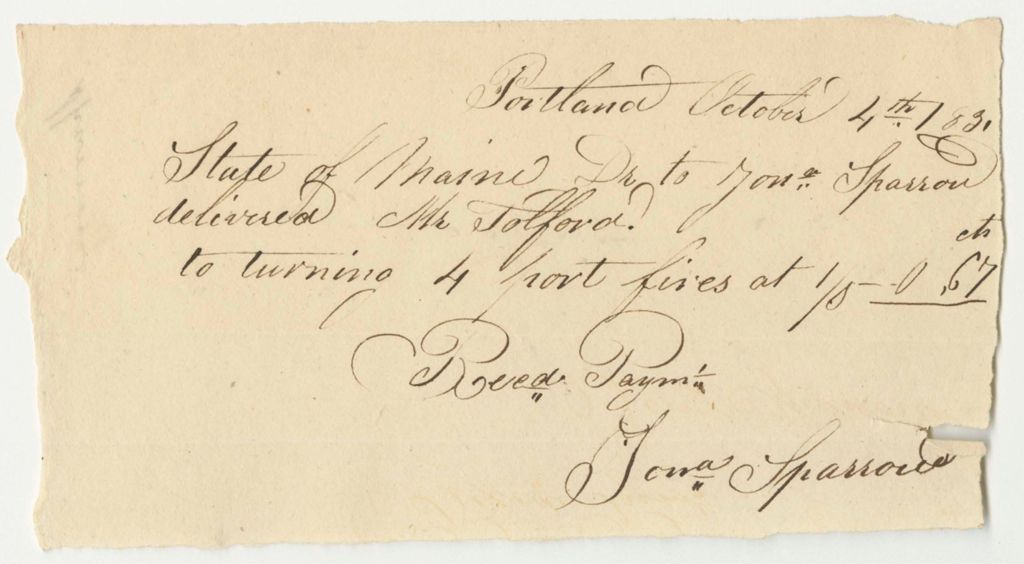 Portland October 4th 1831
State of Maine Dr to Jona Sparrow
delivered Mr Tolford.
cts
to turning 4 port fires at 1/ - 0,67
Recd Paymt
Jona Sparrow